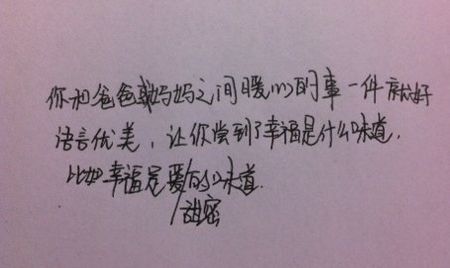 你和爸爸或妈妈之间暖心的事一件就好
语言优美，让你尝到了幸福是什么味道，
比如幸福是爱的味道
/甜蜜